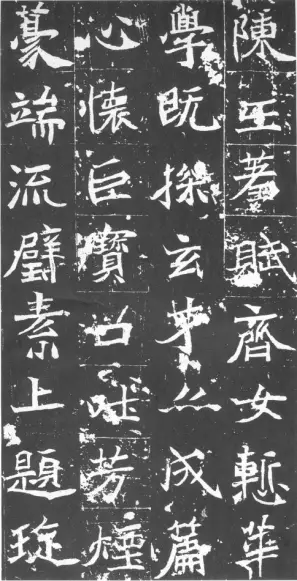 陳王著賦齊女慙華
學既探玄才亦成篇
心懷巨寶口吐芳煙
豪端流璧素上題琁